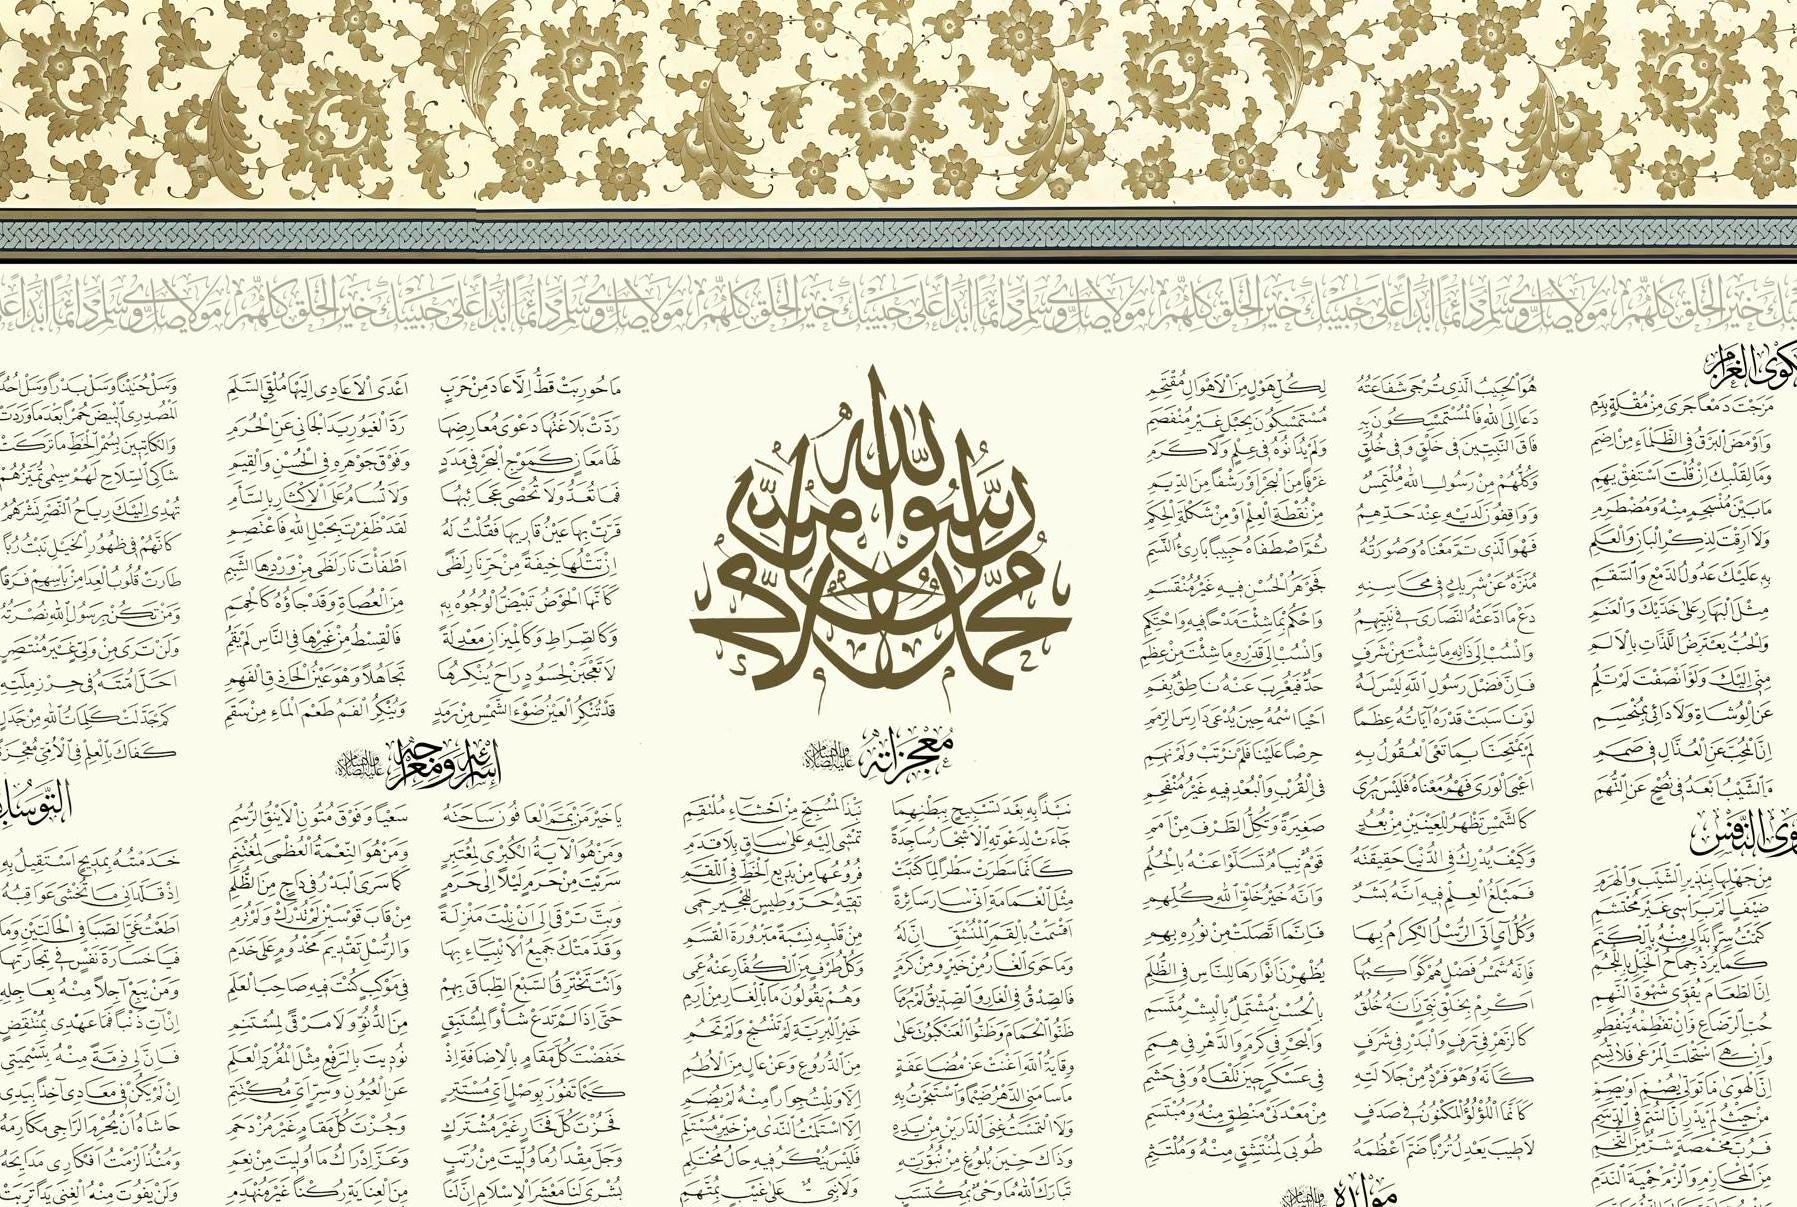 مولاي صل وسلم دائما أبدا على حبيبك خير الخلق كلهم
شكوى الغرام
مزجت دمعا جرى من مقلة بدم
وأومض البرق في الظلماء من إضم
وما لقلبك إن قلت استفق يهم
ما بين منسجم منه ومضطرم
ولا أرقت لذكر البان والعلم
به عليك عدول الدمع والسقم
مثل البهار على خديك والعنم
والحب يعترض اللذات بالألم
مني إليك ولو أنصفت لم تلم
عن الوشاة ولا دائي بمنحسم
إن المحب عن العذال في صمم
والشيب أبعد في نصح عن التهم
هوى النفس
من جهلها بنذير الشيب والهرم
ضيف ألم برأسي غير محتشم
كتمت سرا بدا لي منه بالكتم
كما يرد جماح الخيل باللجم
إن الطعام يقوي شهوة النهم
حب الرضاع وإن تفطمه ينفطم
إن الهوى ما تولى يصم أو يصم
وإن هي استحلت المرعى فلا تسم
من حيث لم يدر أن السم في الدسم
فرب مخمصة شر من التخم
من المحارم والزم حمية الندم
هو الحبيب الذي ترجى شفاعته لكل هول من الأهوال مقتحم
دعا إلى الله فالمستمسكون به مستمسكون بحبل غير منفصم
فاق النبيين في خلق وفي خلق ولم يدانوه في علم ولا كرم
وكلهم من رسول الله ملتمس غرفا من البحر أو رشفا من الديم
وواقفون لديه عند حدهم من نقطة العلم أو من شكلة الحكم
فهو الذي تم معناه وصورته ثم اصطفاه حبيبا بارئ النسم
منزه عن شريك في محاسنه فجوهر الحسن فيه غير منقسم
دع ما ادعته النصارى في نبيهم واحكم بما شئت مدحا فيه واحتكم
وانسب إلى ذاته ما شئت من شرف وانسب إلى قدره ما شئت من عظم
فإن فضل رسول الله ليس له حد فيعرب عنه ناطق بفم
لو ناسبت قدره آياته عظما أحيا اسمه حين يدعى دارس الرمم
لم يمتحنا بما تعيى العقول به حرصا علينا فلم نرتب ولم نهم
أعيى الورى فهم معناه فليس يرى في القرب والبعد فيه غير منفحم
كالشمس تظهر للعينين من بعد صغيرة وتكل الطرف من أمم
وكيف يدرك في الدنيا حقيقته قوم نيام تسلوا عنه بالحلم
فمبلغ العلم فيه أنه بشر وأنه خير خلق الله كلهم
وكل آي أتى الرسل الكرام بها فإنما اتصلت من نوره بهم
فإنه شمس فضل هم كواكبها يظهرن أنوارها للناس في الظلم
أكرم بخلق نبي زانه خلق بالحسن مشتمل بالبشر متسم
كالزهر في ترف والبدر في شرف والبحر في كرم والدهر في همم
كأنه وهو فرد من جلالته في عسكر حين تلقاه وفي حشم
كأنما اللؤلؤ المكنون في صدف من معدني منطق منه ومبتسم
لا طيب يعدل تربا ضم أعظمه طوبى لمنتشق منه وملتثم
مولده عليه الصلاة والسلام
محمد رسول الله
معجزاته عليه الصلاة والسلام
نبذا به بعد تسبيح ببطنهما نبذ المسبح من أحشاء ملتقم
جاءت لدعوته الأشجار ساجدة تمشي إليه على ساق بلا قدم
كأنما سطرت سطرا لما كتبت فروعها من بديع الخط في اللقم
مثل الغمامة أنى سار سائرة تقيه حر وطيس للهجير حمي
أقسمت بالقمر المنشق إن له من قلبه نسبة مبرورة القسم
وما حوى الغار من خير ومن كرم وكل طرف من الكفار عنه عمي
فالصدق في الغار والصديق لم يرما وهم يقولون ما بالغار من أرم
ظنوا الحمام وظنوا العنكبوت على خير البرية لم تنسج ولم تحم
وقاية الله أغنت عن مضاعفة من الدروع وعن عال من الأطم
ما سامني الدهر ضيما واستجرت به إلا ونلت جوارا منه لم يضم
ولا التمست غنى الدارين من يده إلا استلمت الندى من خير مستلم
وذاك حين بلوغ من نبوته فليس ينكر فيه حال محتلم
تبارك الله ما وحي بمكتسب ولا نبي على غيب بمتهم
ما حوربت قط إلا عاد من حرب أعدى الأعادي إليها ملقي السلم
ردت بلاغتها دعوى معارضها رد الغيور يد الجاني عن الحرم
لها معان كموج البحر في مدد وفوق جوهره في الحسن والقيم
فما تعد ولا تحصى عجائبها ولا تسام على الإكثار بالسأم
قرت بها عين قاريها فقلت له لقد ظفرت بحبل الله فاعتصم
إن تتلها خيفة من حر نار لظى أطفأت نار لظى من وردها الشبم
كأنها الحوض تبيض الوجوه به من العصاة وقد جاؤوه كالحمم
وكالصراط وكالميزان معدلة فالقسط من غيرها في الناس لم يقم
لا تعجبن لحسود راح ينكرها تجاهلا وهو عين الحاذق الفهم
قد تنكر العين ضوء الشمس من رمد وينكر الفم طعم الماء من سقم
إسراؤه ومعراجه عليه الصلاة والسلام
يا خير من يمم العافون ساحته سعيا وفوق متون الأينق الرسم
ومن هو الآية الكبرى لمعتبر ومن هو النعمة العظمى لمغتنم
سريت من حرم ليلا إلى حرم كما سرى البدر في داج من الظلم
وبت ترقى إلى أن نلت منزلة من قاب قوسين لم تدرك ولم ترم
وقدمتك جميع الأنبياء بها والرسل تقديم مخدوم على خدم
وأنت تخترق السبع الطباق بهم في موكب كنت فيه صاحب العلم
حتى إذا لم تدع شأوا لمستبق من الدنو ولا مرقى لمستنم
خفضت كل مقام بالإضافة إذ نوديت بالرفع مثل المفرد العلم
كيما تفوز بوصل أي مستتر عن العيون وسر أي مكتتم
فحزت كل فخار غير مشترك وجزت كل مقام غير مزدحم
وجل مقدار ما وليت من رتب وعز إدراك ما أوليت من نعم
بشرى لنا معشر الإسلام إن لنا من العناية ركنا غير منهدم
وسل حنينا وسل بدرا وسل أحدا
المصدري البيض حمرا بعد ما وردت
والكاتبين بسمر الخط ما تركت
شاكي السلاح لهم سيمى تميزهم
تهدي إليك رياح النصر نشرهم
كأنهم في ظهور الخيل نبت ربا
طارت قلوب العدا من بأسهم فرقا
ومن تكن برسول الله نصرته
ولن ترى من ولي غير منتصر
أحل أمته في حرز ملته
كم جدلت كلمات الله من جدل
كفاك بالعلم في الأمي معجزة
التوسل
خدمته بمديح أستقيل به
إذ قلداني ما تخشى عواقبه
أطعت غي الصبا في الحالتين وما
فيا خسارة نفس في تجارتها
ومن يبع آجلا منه بعاجله
إن آت ذنبا فما عهدي بمنتقض
فإن لي ذمة منه بتسميتي
إن لم يكن في معادي آخذا بيدي
حاشاه أن يحرم الراجي مكارمه
ومنذ ألزمت أفكاري مدائحه
ولن يفوت الغنى منه يدا تربت